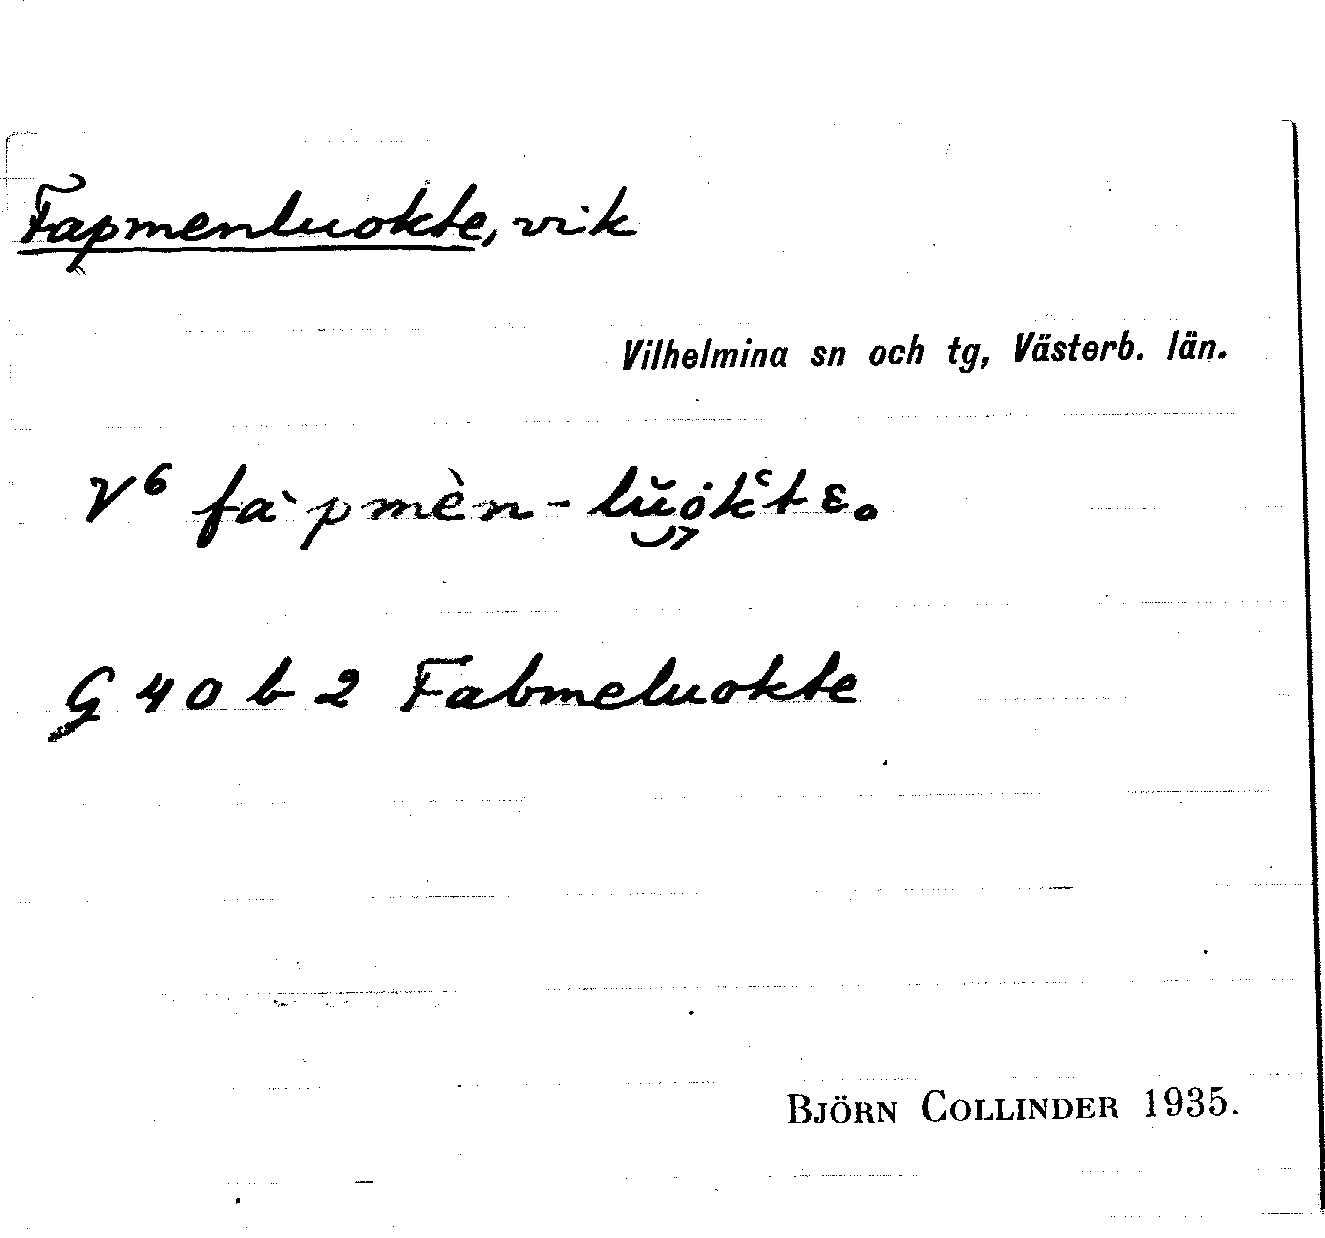 Fapmenluokte, vik
Vilhelmina sn och tg, Västerb. län.
V⁶ fa`pmèn-lŭo̭kʿtε.
G 40 b 2 Fabmeluokte
BJÖRN COLLINDER 1935.